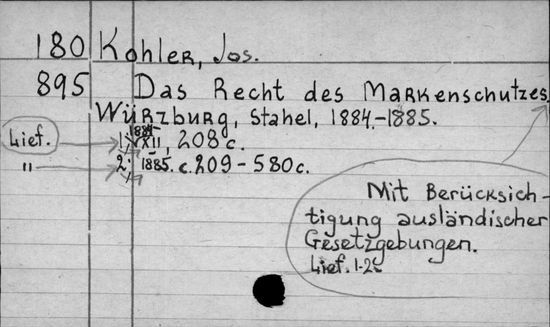 180 Kohler, Jos.
895 Das Recht des Markenschutzes
Würzburg, Stahel, 1884-1885.
Lief. 1, 1884. XII, 208 c.
" 2. 1885. c. 209-580 c.
Mit Berücksich-
tigung ausländischer
Gesetzgebungen.
Lief. 1-2